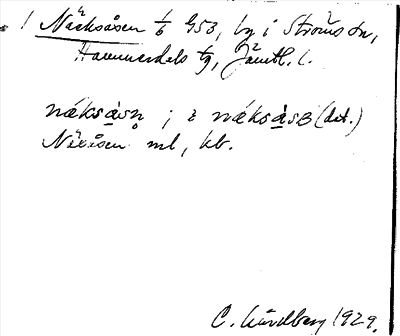 ! Näcksåsen 1/6 953, by i Ströms sn,
Hammerdals tg, Jämtl. l.
näksåsn̥ ; i näksåsɜ (dat.)
Näxåsen ml, kb.
C. Lindberg 1929.